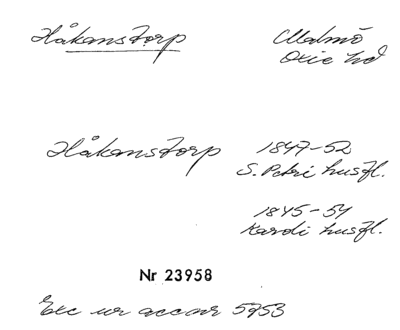 Håkanstorp
Malmö
Oxie hd
Håkanstorp
1847-52
S. Petri husfl.
1845-54
Karoli husfl.
Nr 23958
Exc ur acc nr 5953